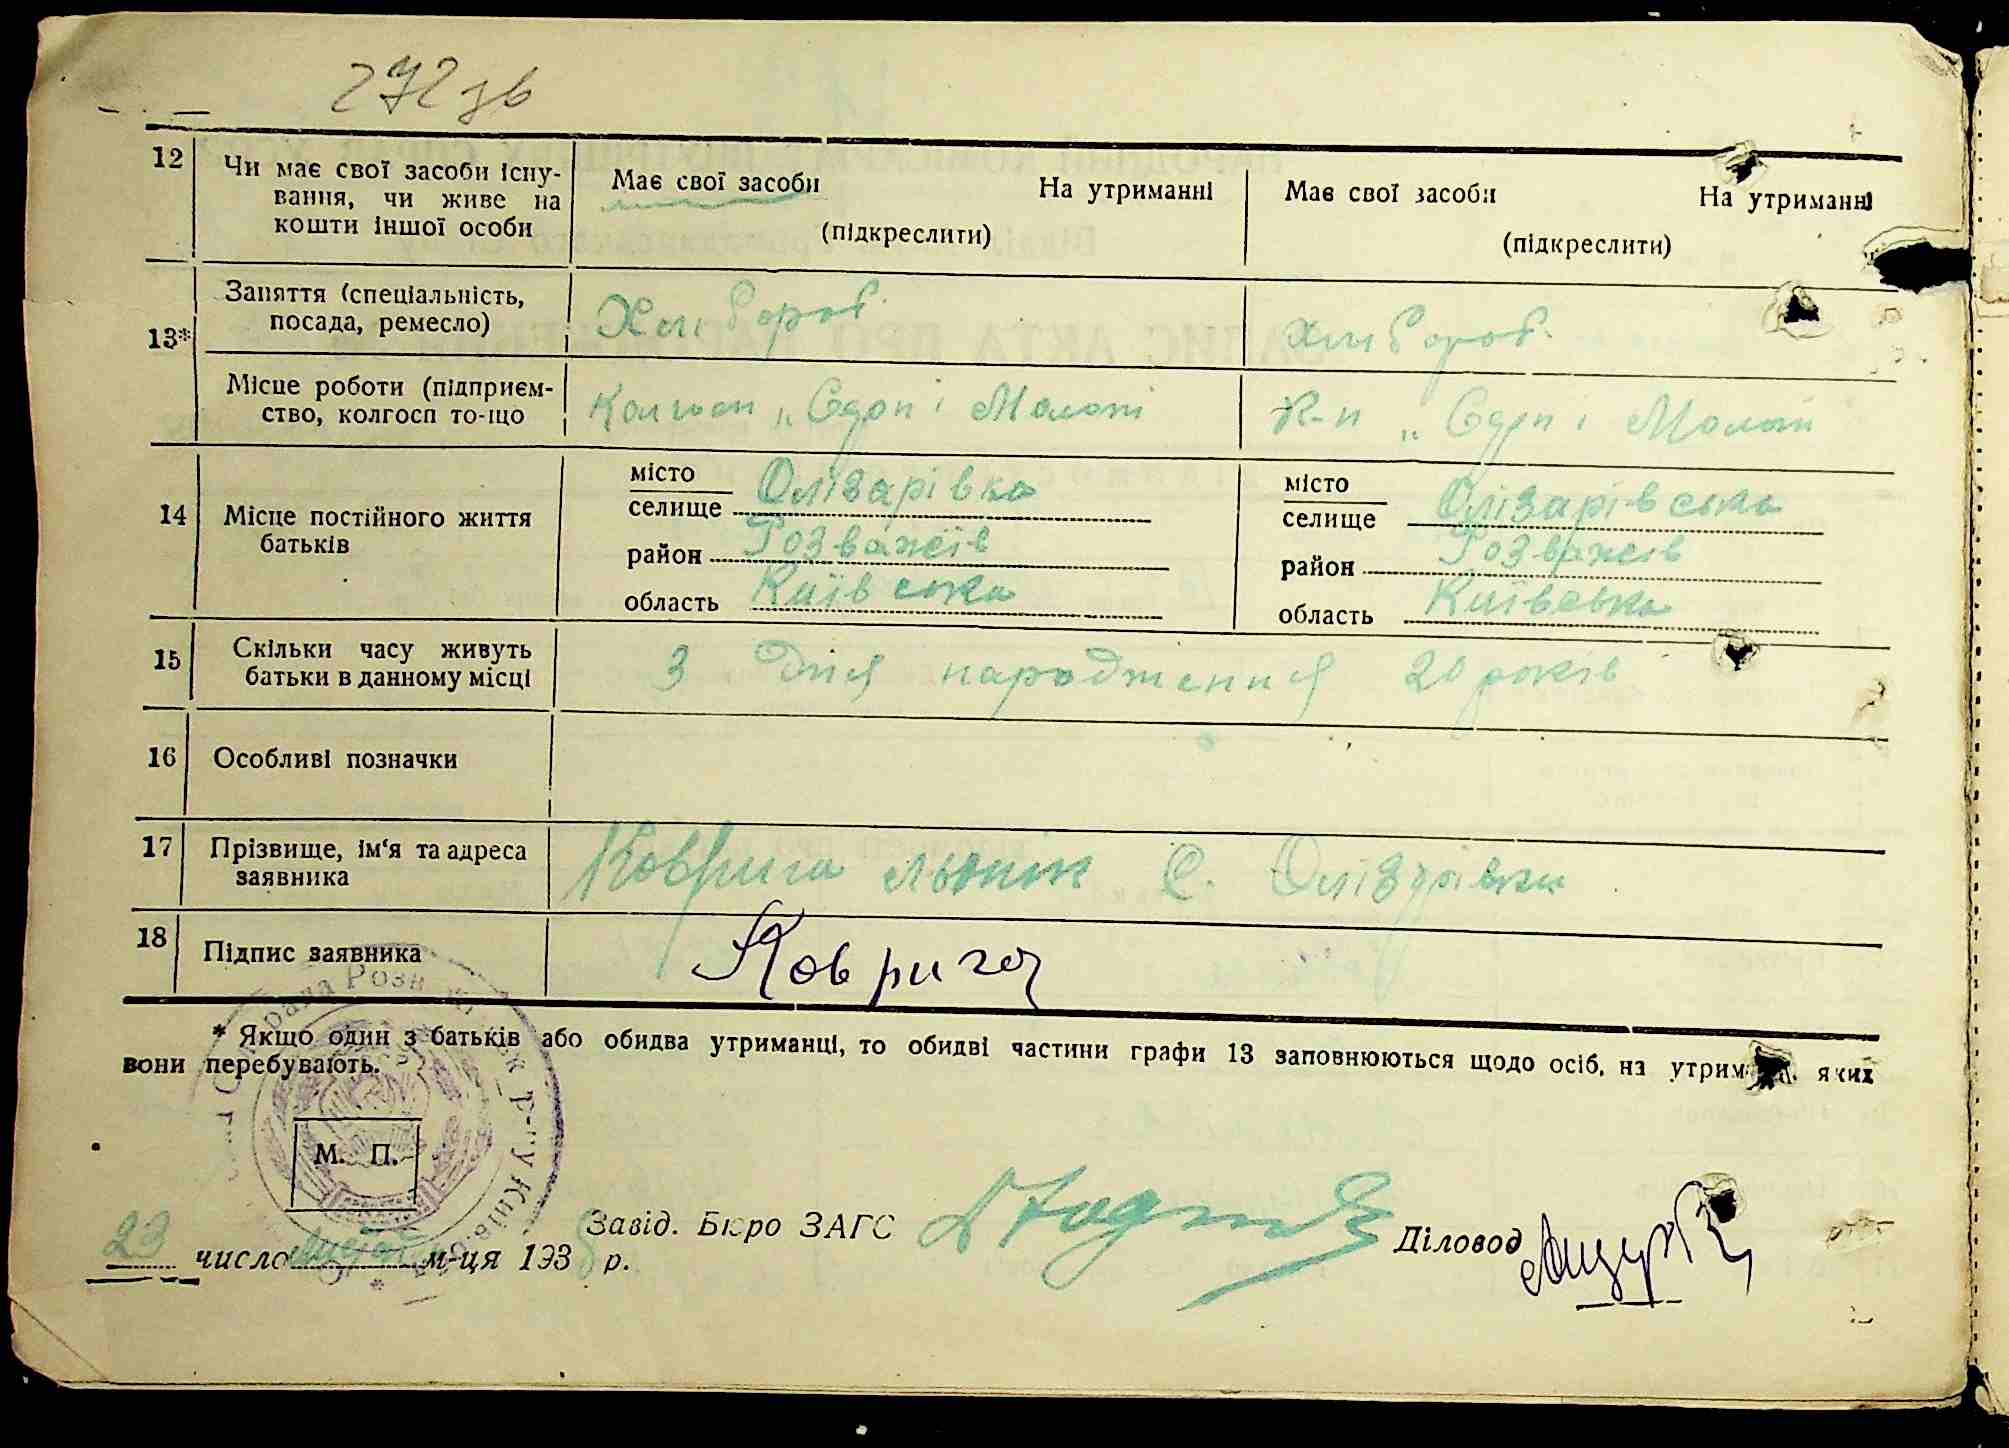 272 зв
12 Чи має свої засоби існу- Має свої засоби На утриманні Має свої засоби На утриманні
вання, чи живе на
кошти іншої особи (підкреслити) (підкреслити)
13* Заняття (спеціальність, Хлибороб Хлибороб.
посада, ремесло)
Місце роботи (підприєм- Колгосп „Серп і Молот К-п „Серп і Молот
ство, колгосп то-що
14 Місце постійного життя батьків
місто Олізарівка місто Олізарівська
селище селище
район Розважів район Розважів
область Київська область Київська
15 Скільки часу живуть З Дня народження 20 років
батьки в данному місці
16 Особливі позначки
17 Прізвище, ім'я та адреса Коврига С. Олізарівка
заявника
18 Підпис заявника Коврига
* Якщо один з батьків або обидва утриманці, то обидві частини графи 13 заповнюються щодо осіб, на яких
вони перебувають.
М. П.
Завід. Бюро ЗАГС Діловод
23 число м-ця 1938 р.